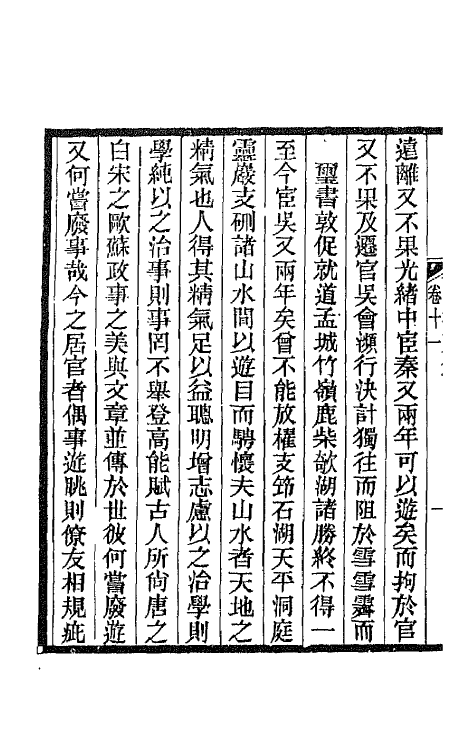 遠離又不果光緒中宦秦又兩年可以遊矣而拘於官
又不果及遷官吳會瀕行決計獨往而阻於雪雪霽而
璽書敦促就道孟城竹嶺鹿柴欹湖諸勝終不得一
至今宦吳又兩年矣曾不能放櫂支筇石湖天平洞庭
靈巖支硎諸山水間以遊目而騁懷夫山水者天地之
精氣也人得其精氣足以益聰明增志慮以之治學則
學純以之治事則事罔不舉登高能賦古人所尙唐之
白宋之歐蘇政事之美與文章並傳於世彼何嘗廢遊
又何嘗廢事哉今之居官者偶事遊眺則僚友相規疵
卷十一